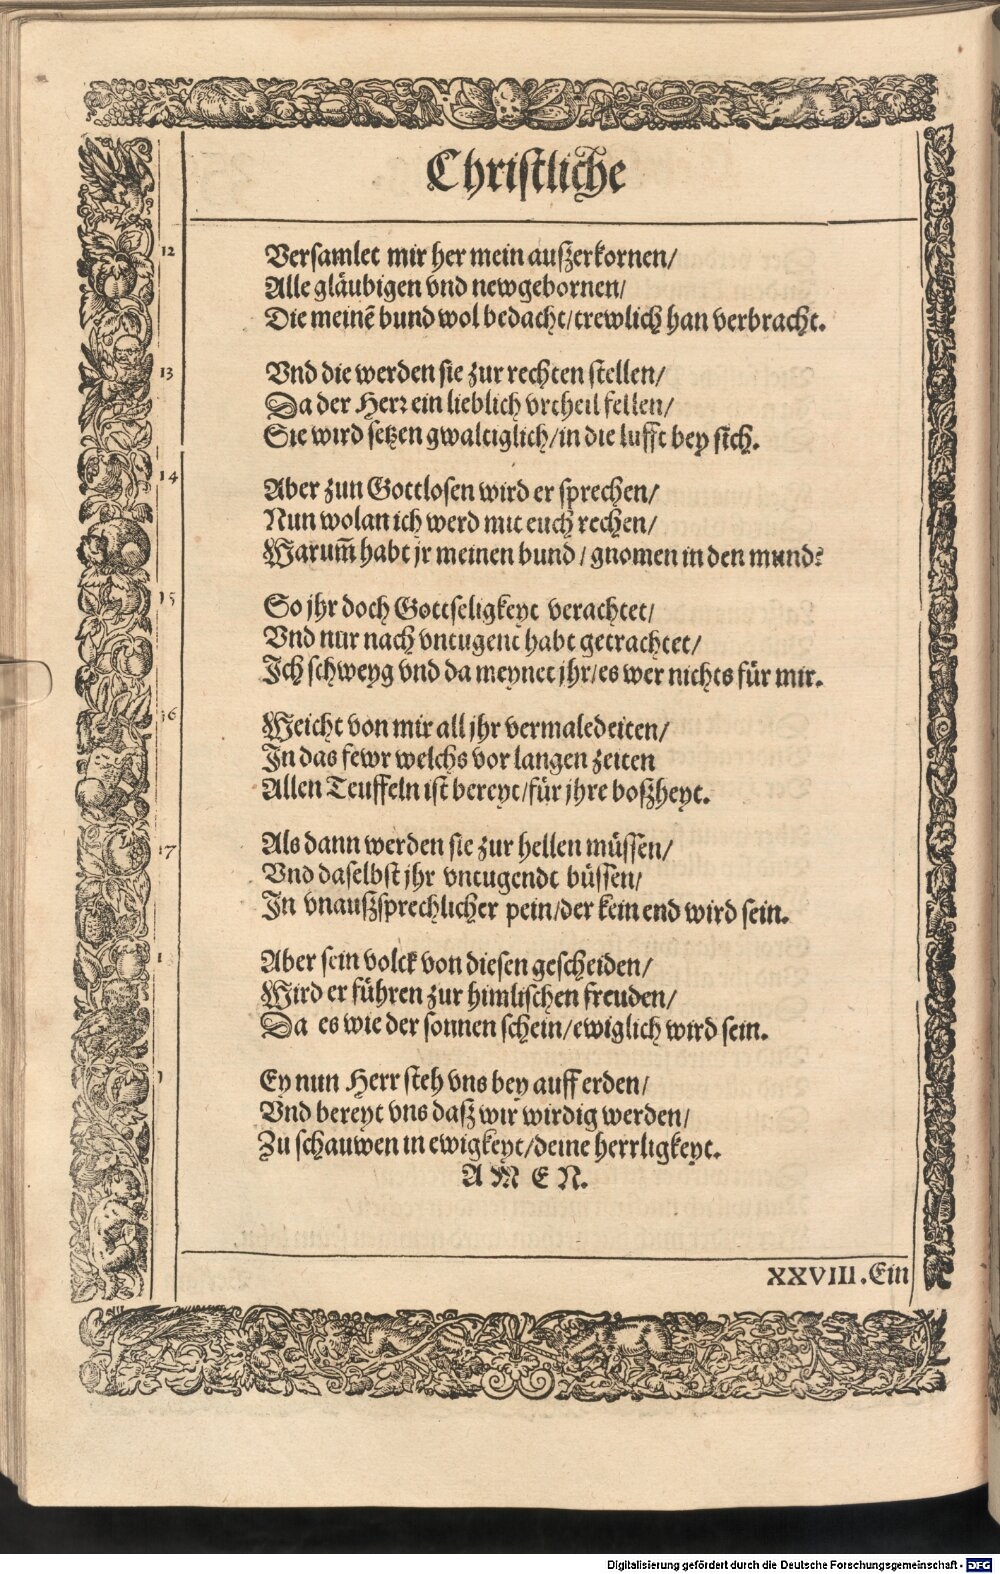 Christliche
12
Versamlet mir her mein außerkornen/
Alle gläubigen vnd newgebornen/
Die meinē bund wol bedacht/trewlich han verbracht.
13
Vnd die werden sie zur rechten stellen/
Da der Herr ein lieblich vrtheil fellen/
Sie wird setzen gwaltiglich/in die lufft bey sich.
14
Aber zun Gottlosen wird er sprechen/
Nun wolan ich werd mit euch rechen/
Warum̄ habt jr meinen bund/gnomen in den mund?
15
So jhr doch Gottseligkeyt verachtet/
Vnd nur nach vntugent habt getrachtet/
Ich schweyg vnd da meynet jhr/es wer nichts für mir.
16
Weicht von mir all jhr vermaledeiten/
In das fewr welchs vor langen zeiten
Allen Teuffeln ist bereyt/für jhre boßheyt.
17
Als dann werden sie zur hellen müssen/
Vnd daselbst jhr vntugendt büssen/
In vnaußsprechlicher pein/der kein end wird sein.
Aber sein volck von diesen gescheiden/
Wird er führen zur himlischen freuden/
Da es wie der sonnen schein/ewiglich wird sein.
Ey nun Herr steh vns bey auff erden/
Vnd bereyt vns daß wir wirdig werden/
Zu schauwen in ewigkeyt/deine herrligkeyt.
A M E N.
XXVIII. Ein
Digitalisierung gefördert durch die Deutsche Forschungsgemeinschaft - DFG